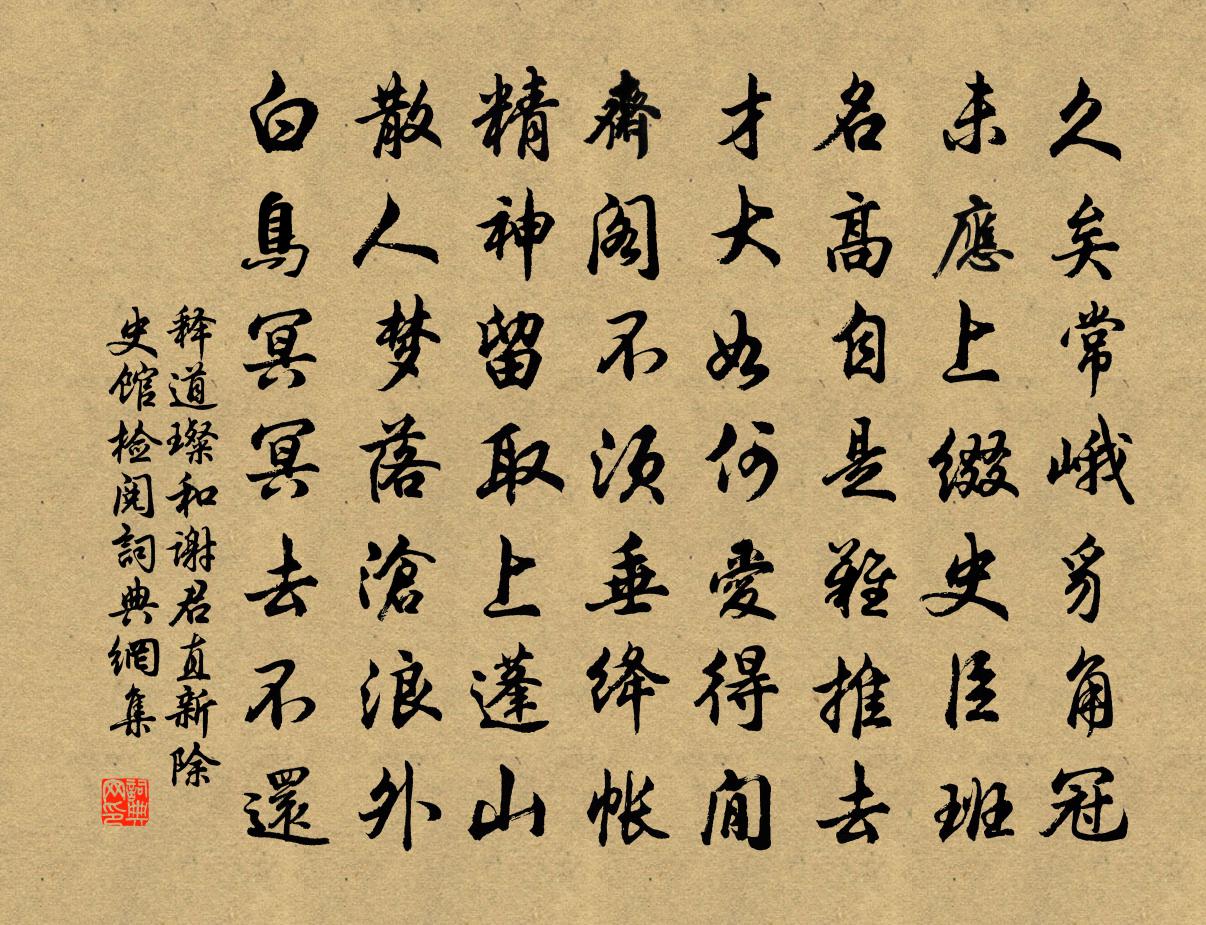 久矣常峨豸角冠
未應上綴史臣班
名高自是難推去
才大如何愛得閒
齋閣不須垂绛帐
精神留取上蓬山
散人梦落滄浪外
白鳥冥冥去不還
释道璨和谢君直新除
史馆检阅詞典網集
詞典网印